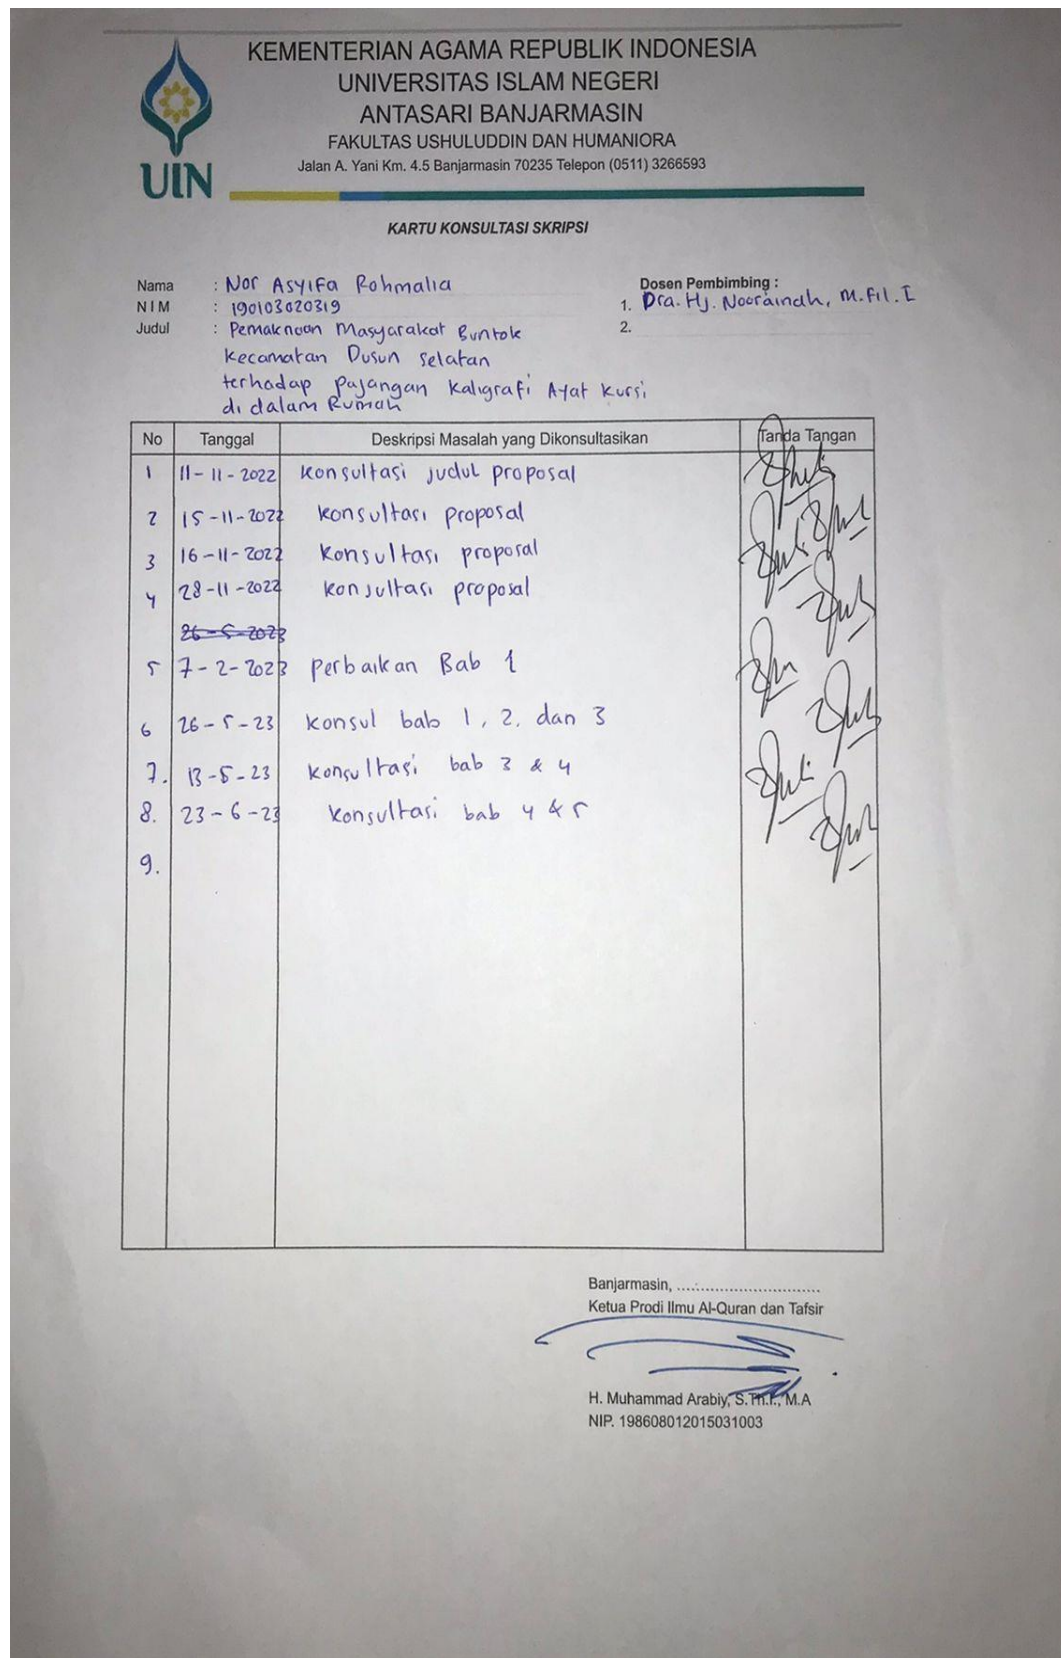 KEMENTERIAN AGAMA REPUBLIK INDONESIA
UNIVERSITAS ISLAM NEGERI
ANTASARI BANJARMASIN
FAKULTAS USHULUDDIN DAN HUMANIORA
Jalan A. Yani Km. 4.5 Banjarmasin 70235 Telepon (0511) 3266593
UIN
KARTU KONSULTASI SKRIPSI
Nama : Nor Asyifa Rohmalia
NIM : 190103020319
Judul : Pemaknaan Masyarakat Buntok
Kecamatan Dusun Selatan
terhadap Pajangan Kaligrafi Ayat Kursi
di dalam Rumah
Dosen Pembimbing :
1. Dra. Hj. Noorainah, M.Fil.I
2.
No Tanggal Deskripsi Masalah yang Dikonsultasikan Tanda Tangan
1 11-11-2022 Konsultasi judul proposal
2 15-11-2022 Konsultasi proposal
3 16-11-2022 Konsultasi proposal
4 28-11-2022 Konsultasi proposal
26-5-2023
5 7-2-2023 Perbaikan Bab 1
6 26-5-23 Konsul bab 1, 2, dan 3
7. 13-5-23 Konsultasi bab 3 & 4
8. 23-6-23 Konsultasi bab 4 & 5
9.
Banjarmasin, ................................
Ketua Prodi Ilmu Al-Quran dan Tafsir
H. Muhammad Arabiy, S.Th.I., M.A
NIP. 198608012015031003